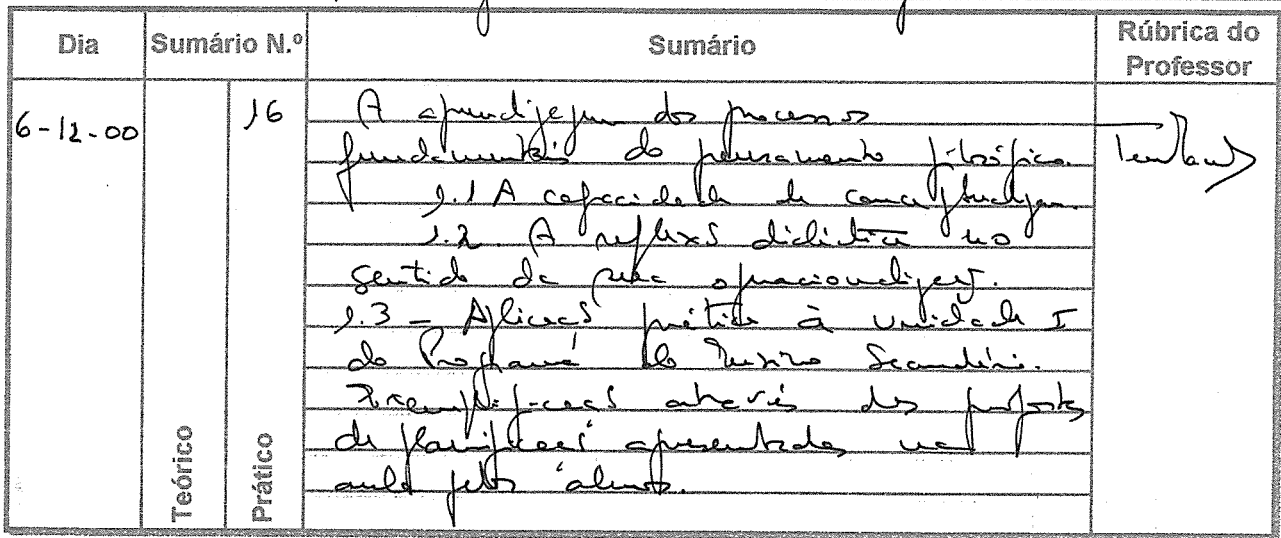 Dia Sumário N.º Sumário Rúbrica do Professor
6-12-00 16 A aprendizagem dos processos
fundamentais do pensamento filosófico.
1.1 A capacidade de conceptualizar.
1.2. A reflexão didáctica no
sentido da sua operacionalização.
1.3 - Aplicação prática à Unidade I
do Programa do Ensino Secundário.
Exemplificação através das propostas
de planificação apresentadas na
aula pelos alunos.
Teórico
Prático